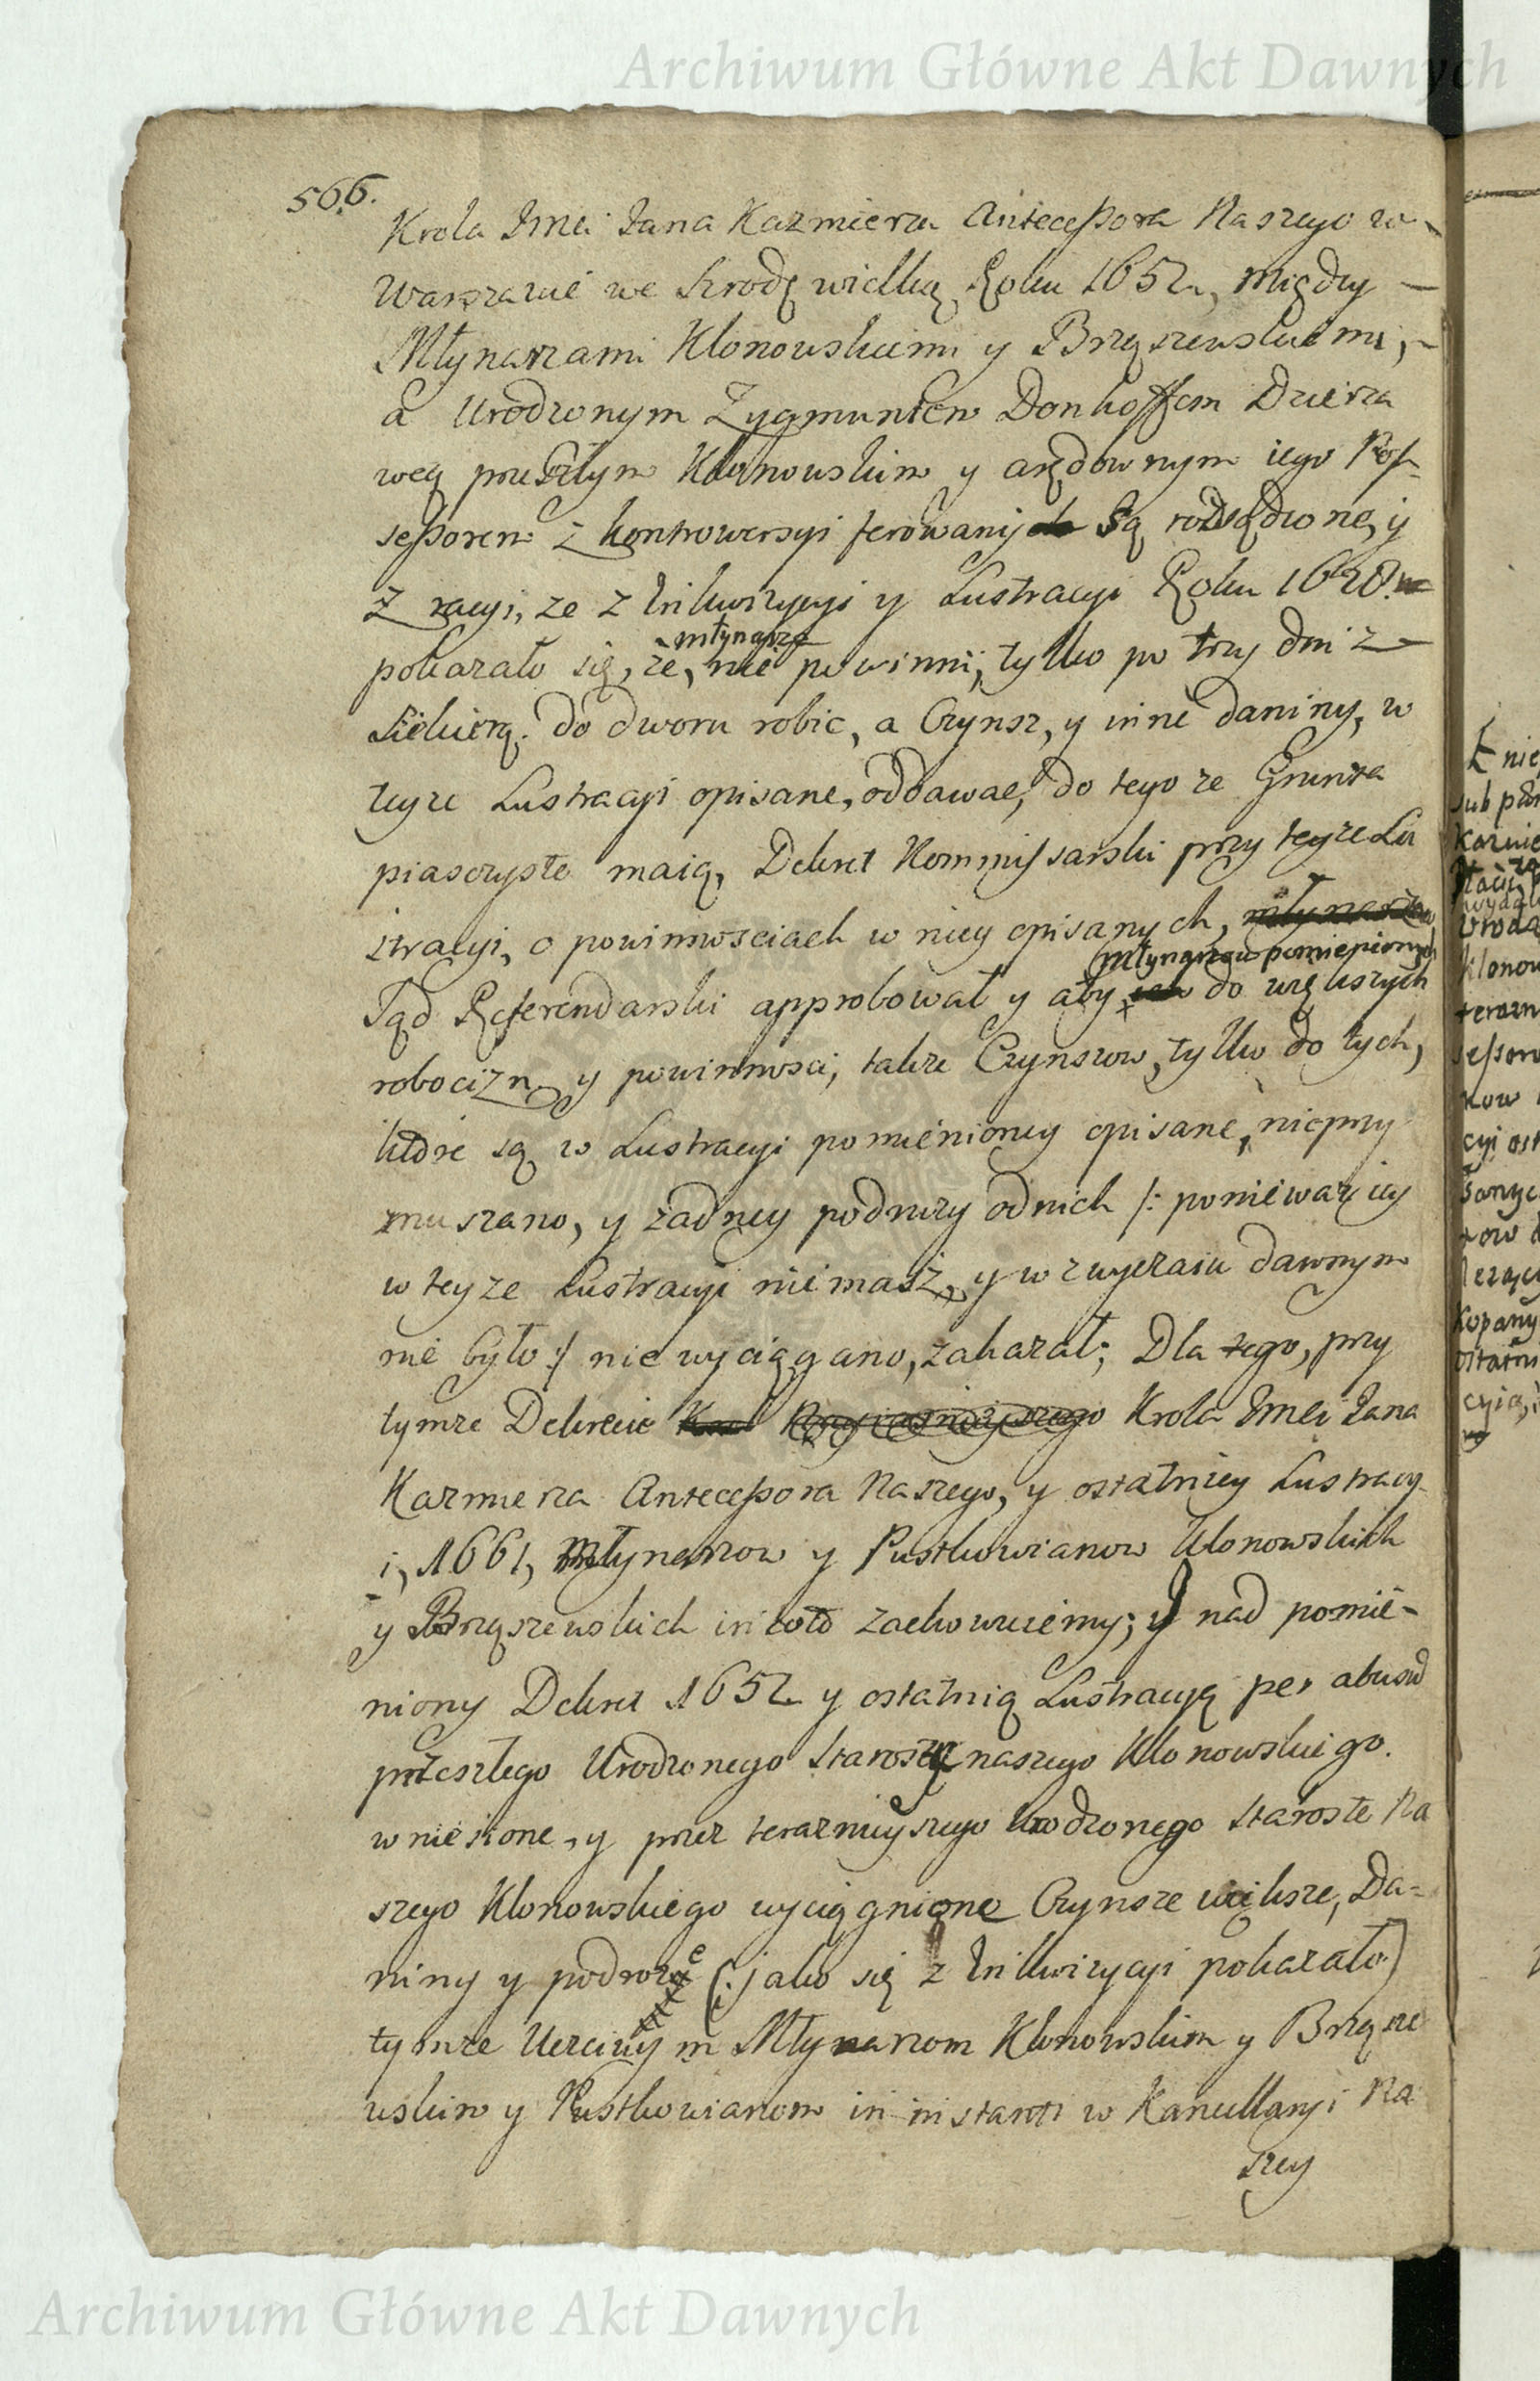 Archiwum Główne Akt Dawnych
566.
Krola Jmci Jana Kazmierza Antecessora Naszego w
Warszawie we Srodę wielką Roku 1652, między
Młynarzami Klonowskiemi y Brząszewskiemi,
a Urodzonym Zygmuntem Donhoffem Dzierza
wcą przeszłym Klonowskim y arędownym iego Pos
sessorem z kontrowersyi ferowany są rozsądzone, y
Z racyi, ze z Inkwizycyi y Lustracyi Roku 1620.
młynarze
pokazało się, że, nie powinni, tylko po trzy dni z
Siekierą do dworu robic, a Czynsz, y inne daniny, w
teyze Lustracyi opisane, oddawac, do tego ze Grunta
piasczyste maią, Dekret Kommissarski przy teyze Lu
stracyi, o powinnosciach w niey opisanych,
młynarzow pomienionych
Sąd Referendarski approbował y aby do większych
robocizn y powinnosci, takze Czynszow, tylko do tych,
ktore są w Lustracyi pomienioney opisane, nieprzy
muszano, y żadney podwozy od nich /: poniewaz iey
w teyze Lustracyi nie masz, y w zwyczaiu dawnym
nie było :/ nie wyciągano, zakazał; Dla tego, przy
tymze Dekrecie Krola Jmci Jana
Kazmierza Antecessora Naszego, y ostatniey Lustracy
i, 1661, Młynarzow y Pustkowianow Klonowskich
y Brząszewskich in toto zachowuiemy; y nad pomie-
niony Dekret 1652 y ostatnią Lustracyą per abusum
przeszłego Urodzonego Starostę naszego Klonowskiego.
wniesione, y przez teraznieyszego Urodzonego Staroste Na
szego Klonowskiego wyciągnione Czynsze większe, Da=
niny y podwoze (: jako się z Inkwizycyi pokazało)
tymze Uczciwym Młynarzom Klonowskim y Brząsze
wskim y Pustkowianom in instanti w Kancellaryi Na
szey
Archiwum Główne Akt Dawnych